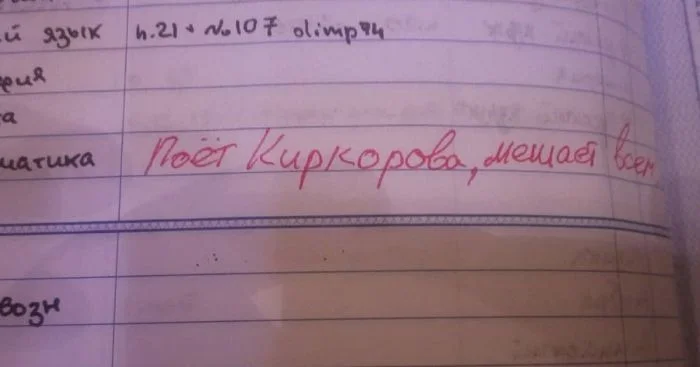 й язык п.21 + №107 olimp
рия
та
матика Поёт Киркорова, мешает всем
возн